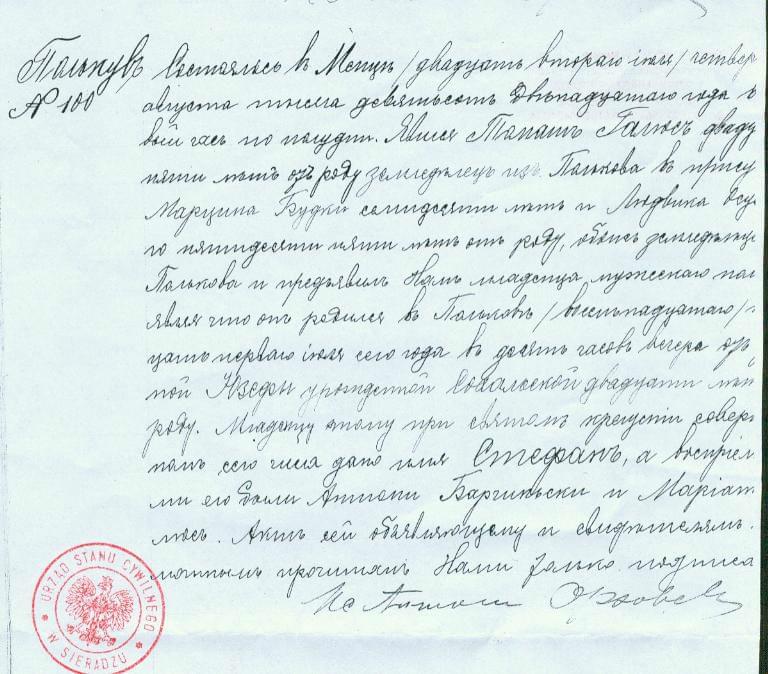 Полкувъ
№ 100
Состоялось въ Менцкѣ / двадцать втораго іюля / четвер
августа тысяча девятьсотъ двѣнадцатаго года въ
вой часъ по полудни. Явился Томашъ Галюсъ двадц
пяти лѣтъ отъ роду земледѣлецъ изъ Полкова въ прису
Марцина Будки семидесяти лѣтъ и Людвика
го пятидесяти пяти лѣтъ отъ роду, обоихъ земледѣльце
Полкова и предъявилъ Намъ младенца мужескаго пол
являя что онъ родился въ Полковѣ / восемьнадцатаго /
цать перваго іюля сего года въ десять часовъ вечера отъ
ной Юзефы урожденной Сокальской двадцати лѣт
роду. Младенцу этому при святомъ крещеніи совер
номъ сего числа дано имя Стефанъ, а воспріем
ми его были Антони и Маріан
люсъ. Актъ сей объявляющему и свидѣтелямъ
мотнымъ прочитанъ Нами только подписа
URZĄD STANU CYWILNEGO
W SIERADZU